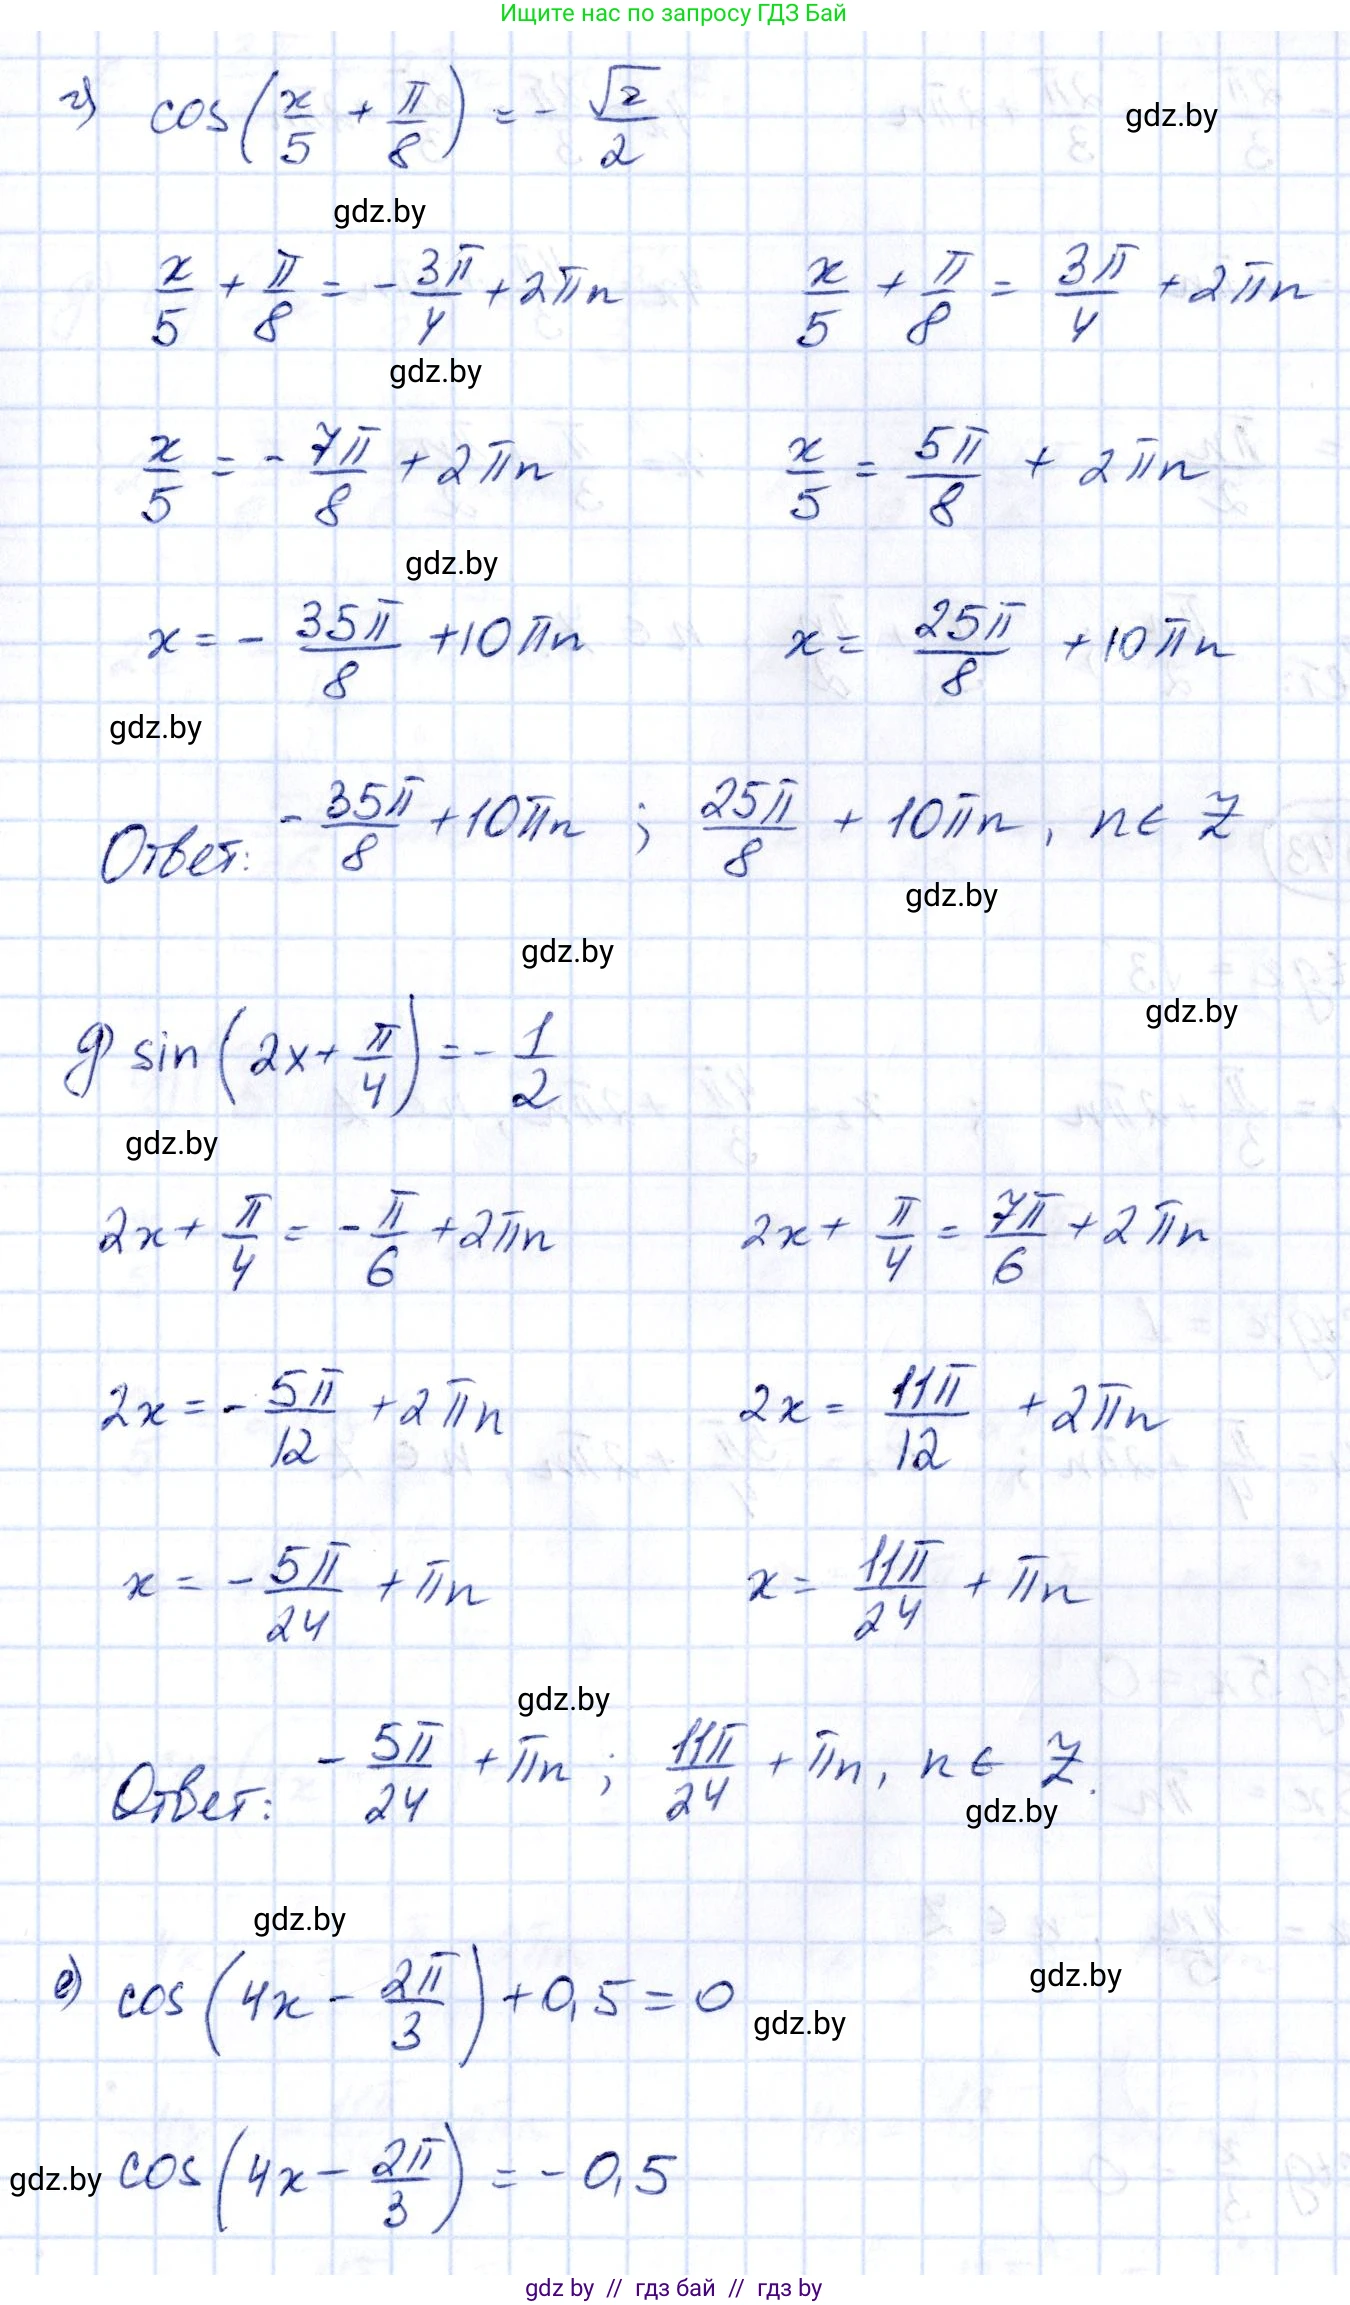 Ищите нас по запросу ГДЗ Бай
г) cos(x/5 + π/8) = - √2/2
gdz.by
gdz.by
x/5 + π/8 = - 3π/4 + 2πn     x/5 + π/8 = 3π/4 + 2πn
gdz.by
x/5 = - 7π/8 + 2πn     x/5 = 5π/8 + 2πn
gdz.by
x = - 35π/8 + 10πn     x = 25π/8 + 10πn
gdz.by
Ответ: - 35π/8 + 10πn ; 25π/8 + 10πn, n ∈ Z
gdz.by
gdz.by
gdz.by
д) sin(2x + π/4) = - 1/2
gdz.by
2x + π/4 = - π/6 + 2πn     2x + π/4 = 7π/6 + 2πn
2x = - 5π/12 + 2πn     2x = 11π/12 + 2πn
x = - 5π/24 + πn     x = 11π/24 + πn
gdz.by
Ответ: - 5π/24 + πn ; 11π/24 + πn, n ∈ Z.
gdz.by
gdz.by
е) cos(4x - 2π/3) + 0,5 = 0
gdz.by
gdz.by
gdz.by
cos(4x - 2π/3) = - 0,5
gdz by // гдз бай // гдз by